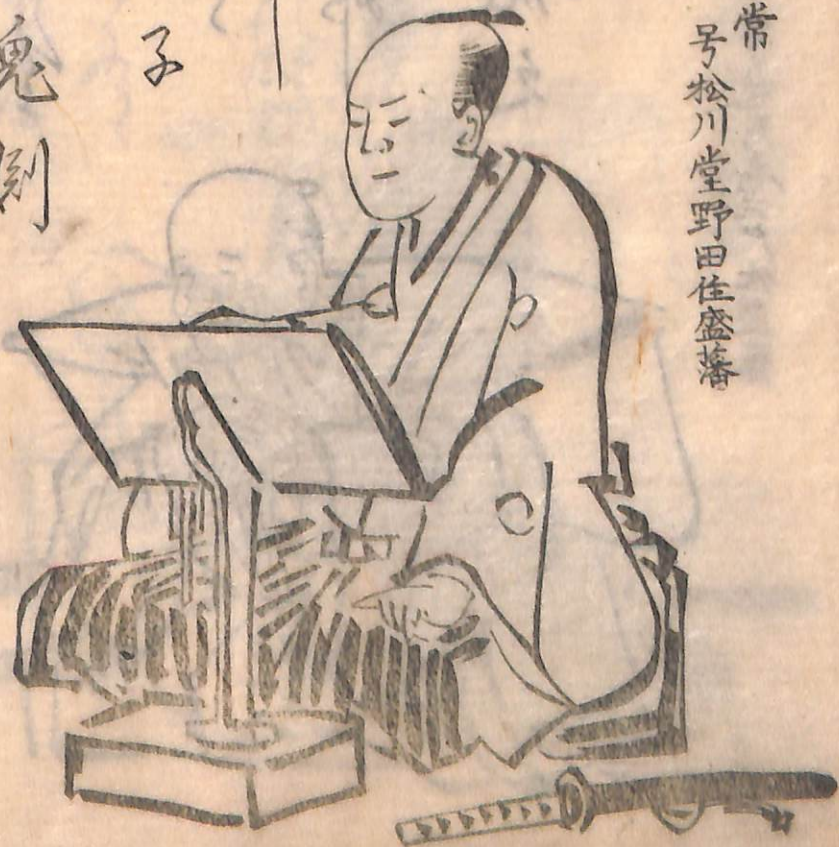 常
号松川堂野田住盛藩
子
鬼
剣